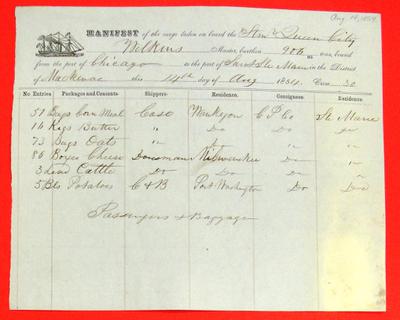 Aug 14, 1854
MANIFEST of the cargo taken on board the Stmr Queen City
Wilkins Master, burthen 906 tons, bound
from the port of Chicago to the port of Saut Ste Marie in the District
of Mackinac this 14th day of Aug 1854. Crew 30
No. Entries Packages and Contents. Shippers. Residence. Consignees. Residence.
51 Bags Corn Meal Case Waukegon C P Co St. Marie
16 Kegs Butter " Do Do Do
73 Bags Oats " Do "
86 Boxes Cheese Milwaukee Do
3 Cattle Do Do
5 Bls Potatoes C & B Port Washington Do Do
Passengers & Baggage